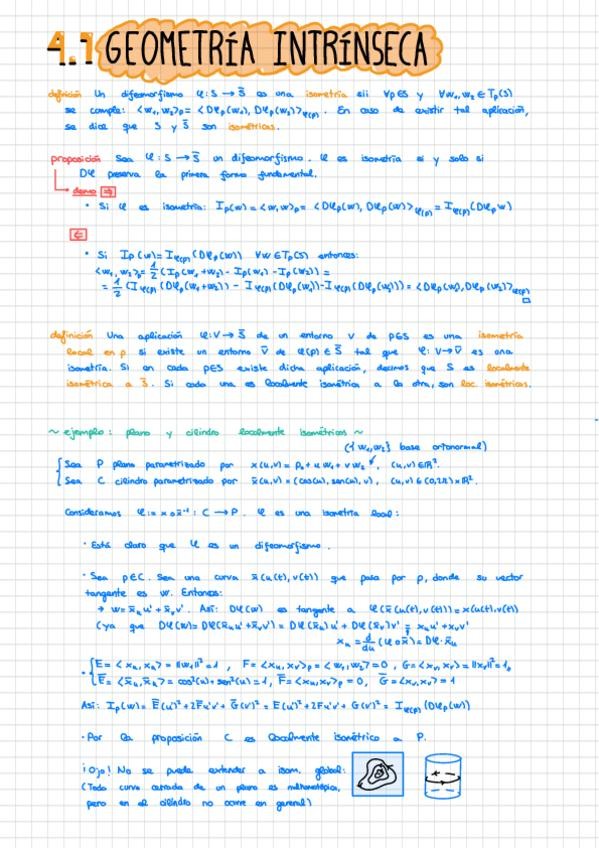 4.1 GEOMETRÍA INTRÍNSECA
definición Un difeomorfismo φ: S → S̄ es una isometría sii ∀p∈S y ∀w₁, w₂ ∈ Tₚ(S)
se cumple: <w₁, w₂>ₚ = <Dφₚ(w₁), Dφₚ(w₂)>φ(p). En caso de existir tal aplicación,
se dice que S y S̄ son isométricas.
proposición Sea φ: S → S̄ un difeomorfismo. φ es isometría si y solo si
Dφ preserva la primera forma fundamental.
demo ⇒
• Si φ es isometría: Iₚ(w) = <w, w>ₚ = <Dφₚ(w), Dφₚ(w)>φ(p) = Iφ(p)(Dφₚ w)
⇐
• Si Iₚ(w) = Iφ(p)(Dφₚ(w)) ∀w∈Tₚ(S) entonces:
<w₁, w₂>ₚ = 1/2 (Iₚ(w₁+w₂) - Iₚ(w₁) - Iₚ(w₂)) =
= 1/2 (Iφ(p)(Dφₚ(w₁+w₂)) - Iφ(p)(Dφₚ(w₁)) - Iφ(p)(Dφₚ(w₂))) = <Dφₚ(w₁), Dφₚ(w₂)>φ(p) □
definición Una aplicación φ: V → S̄ de un entorno V de p∈S es una isometría
local en p si existe un entorno V̄ de φ(p) ∈ S̄ tal que φ: V → V̄ es una
isometría. Si en cada p∈S existe dicha aplicación, decimos que S es localmente
isométrica a S̄. Si cada una es localmente isométrica a la otra, son loc. isométricas.
~ ejemplo: plano y cilindro localmente isométricos ~
({w₁, w₂} base ortonormal)
Sea P plano parametrizado por x(u,v) = p₀ + u w₁ + v w₂, (u,v) ∈ ℝ².
Sea C cilindro parametrizado por x̄(u,v) = (cos(u), sen(u), v), (u,v) ∈ (0,2π)×ℝ.
Consideramos φ := x ∘ x̄⁻¹: C → P. φ es una isometría local:
• Está claro que φ es un difeomorfismo.
• Sea p∈C. Sea una curva x̄(u(t), v(t)) que pasa por p, donde su vector
tangente es w. Entonces:
→ w = x̄ᵤ u' + x̄ᵥ v'. Así: Dφ(w) es tangente a φ(x̄(u(t), v(t))) = x(u(t), v(t))
(ya que Dφ(w) = Dφ(x̄ᵤu' + x̄ᵥv') = Dφ(x̄ᵤ)u' + Dφ(x̄ᵥ)v' = xᵤu' + xᵥv'
xᵤ = d/du (φ∘x̄) = Dφ·x̄ᵤ
• E = <xᵤ, xᵤ> = ||w₁||² = 1, F = <xᵤ, xᵥ>ₚ = <w₁, w₂> = 0, G = <xᵥ, xᵥ> = ||xᵥ||² = 1,
Ē = <x̄ᵤ, x̄ᵤ> = cos²(u) + sen²(u) = 1, F̄ = <x̄ᵤ, x̄ᵥ>ₚ = 0, Ḡ = <x̄ᵥ, x̄ᵥ> = 1
Así: Iₚ(w) = Ē(u')² + 2F̄u'v' + Ḡ(v')² = E(u')² + 2Fu'v' + G(v')² = Iφ(p)(Dφₚ(w))
• Por la proposición C es localmente isométrico a P.
¡Ojo! No se puede extender a isom. global:
(Toda curva cerrada de un plano es nulhomotópica,
pero en el cilindro no ocurre en general)